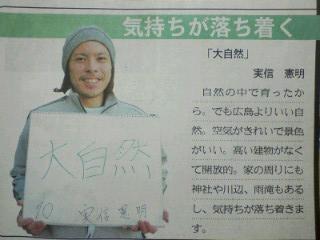 気持ちが落ち着く
「大自然」
実信　憲明
自然の中で育ったか
ら。でも広島よりいい自
然。空気がきれいで景色
がいい。高い建物がなく
て開放的。家の周りにも
神社や川辺、雨滝もある
し、気持ちが落ち着きま
す。
大自然
実信 憲明